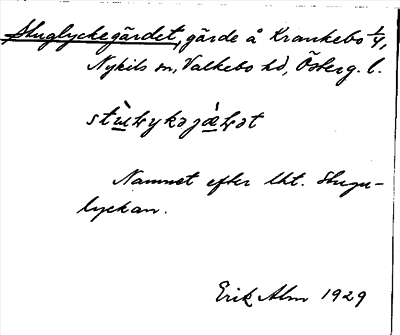 Stuglyckegärdet, gärde å Krankebo 1/4,
Nykils sn, Valkebo hd, Österg. l.
Namnet efter lht. Stugu-
lyckan.
Erik Alm 1929